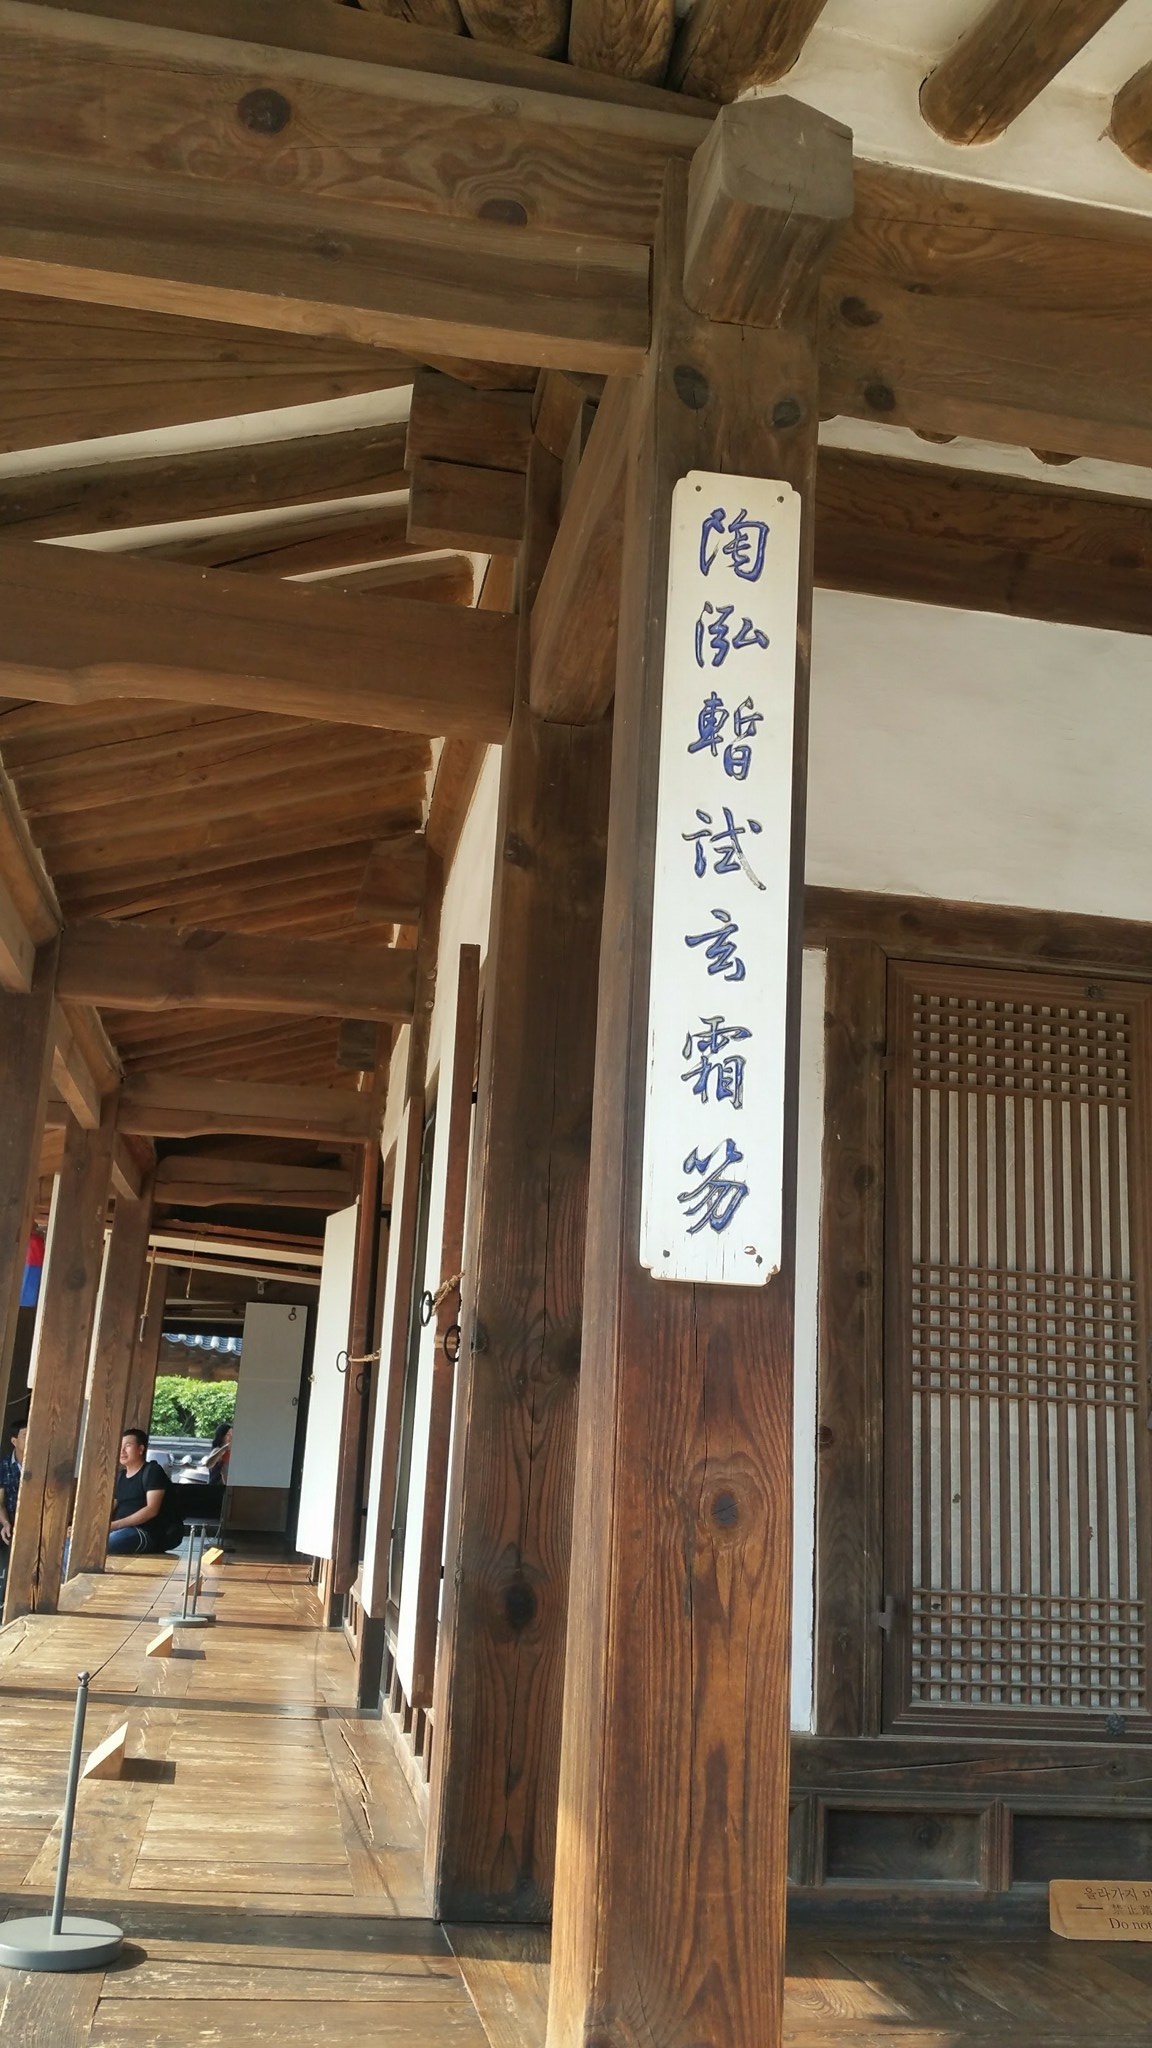 陶泓暫試玄霜笏
올라가지 마
禁止踏
Do not